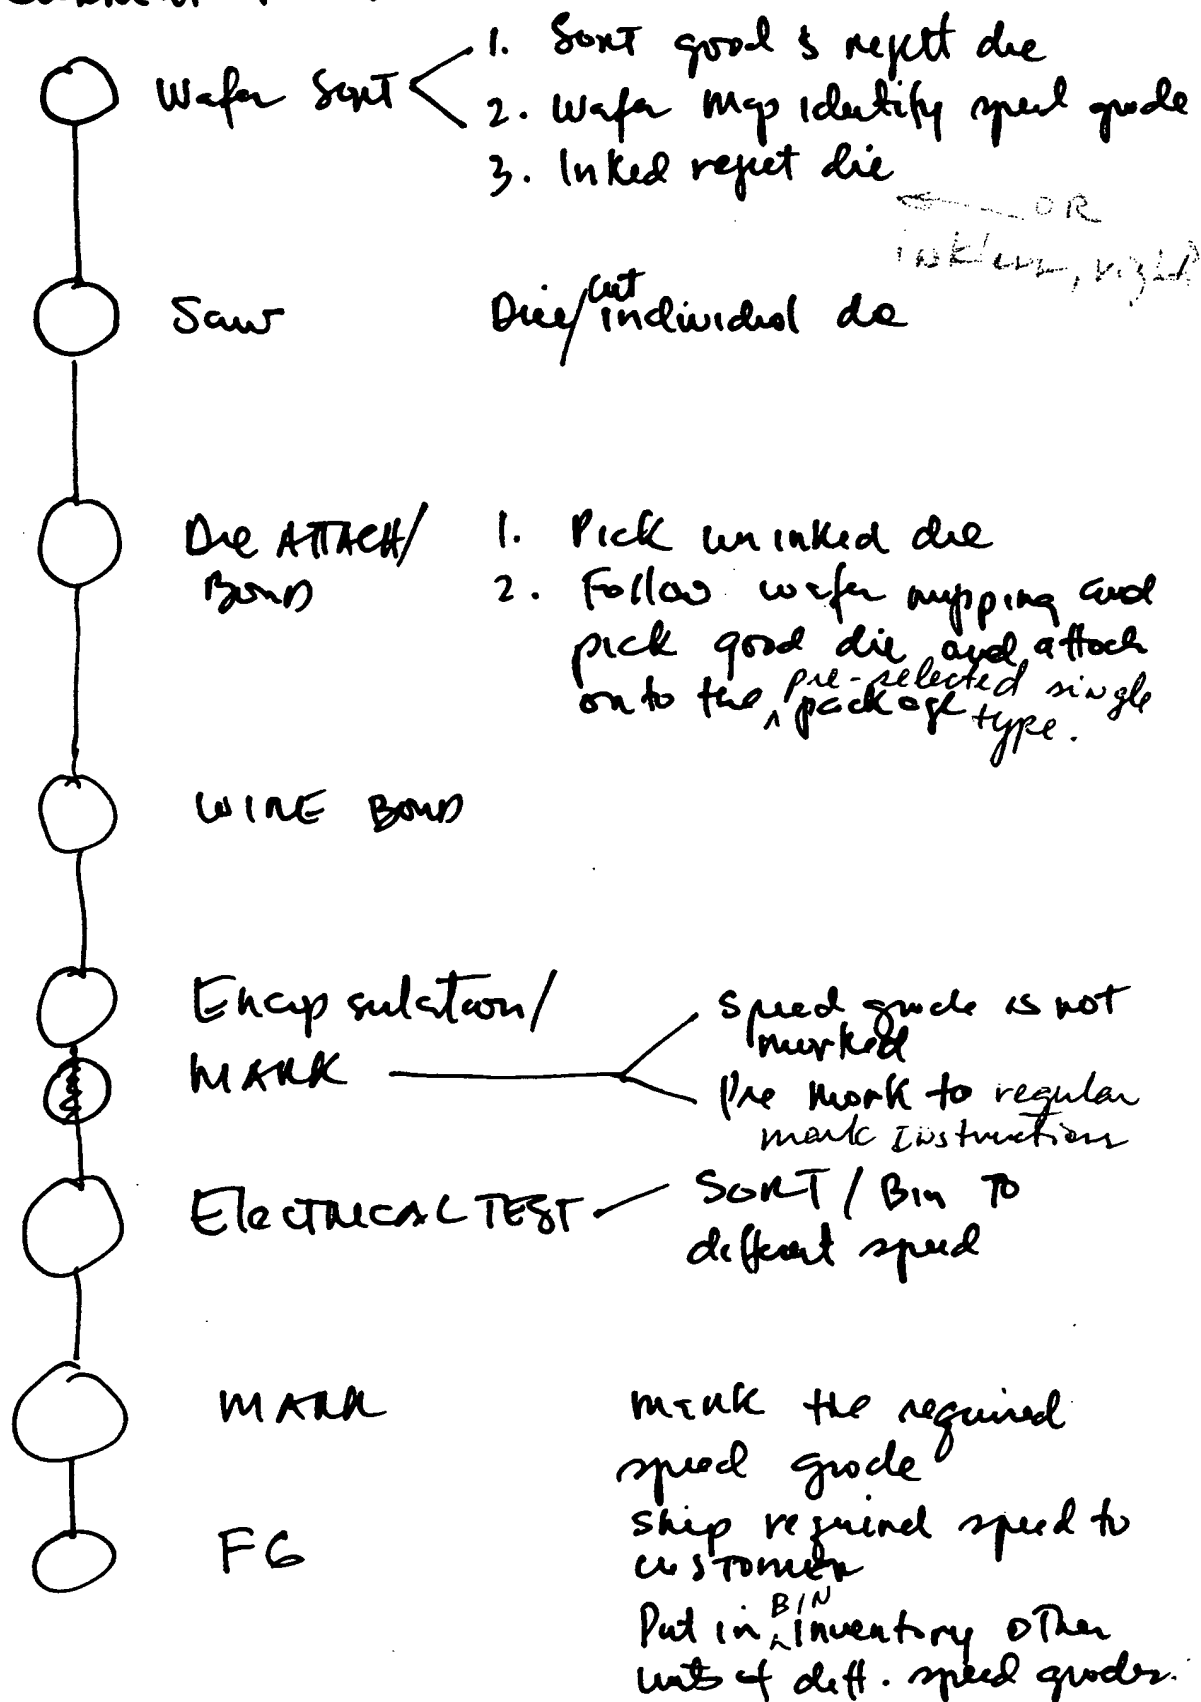 Wafer Sort
1. Sort good & reject die
2. Wafer map identify speed grade
3. Inked reject die
OR
inkless, right?
Saw
Dice/cut individual die
Die ATTACH/
BOND
1. Pick uninked die
2. Follow wafer mapping and
pick good die and attach
onto the pre-selected single
package type.
WIRE BOND
Encapsulation/
MARK
speed grade is not
marked
Pre mark to regular
mark Instructions
ElecTRICAL TEST
SORT / Bin TO
different speed
MARK
mark the required
speed grade
FG
ship required speed to
CUSTOMER
Put in BIN inventory other
units of diff. speed grades.